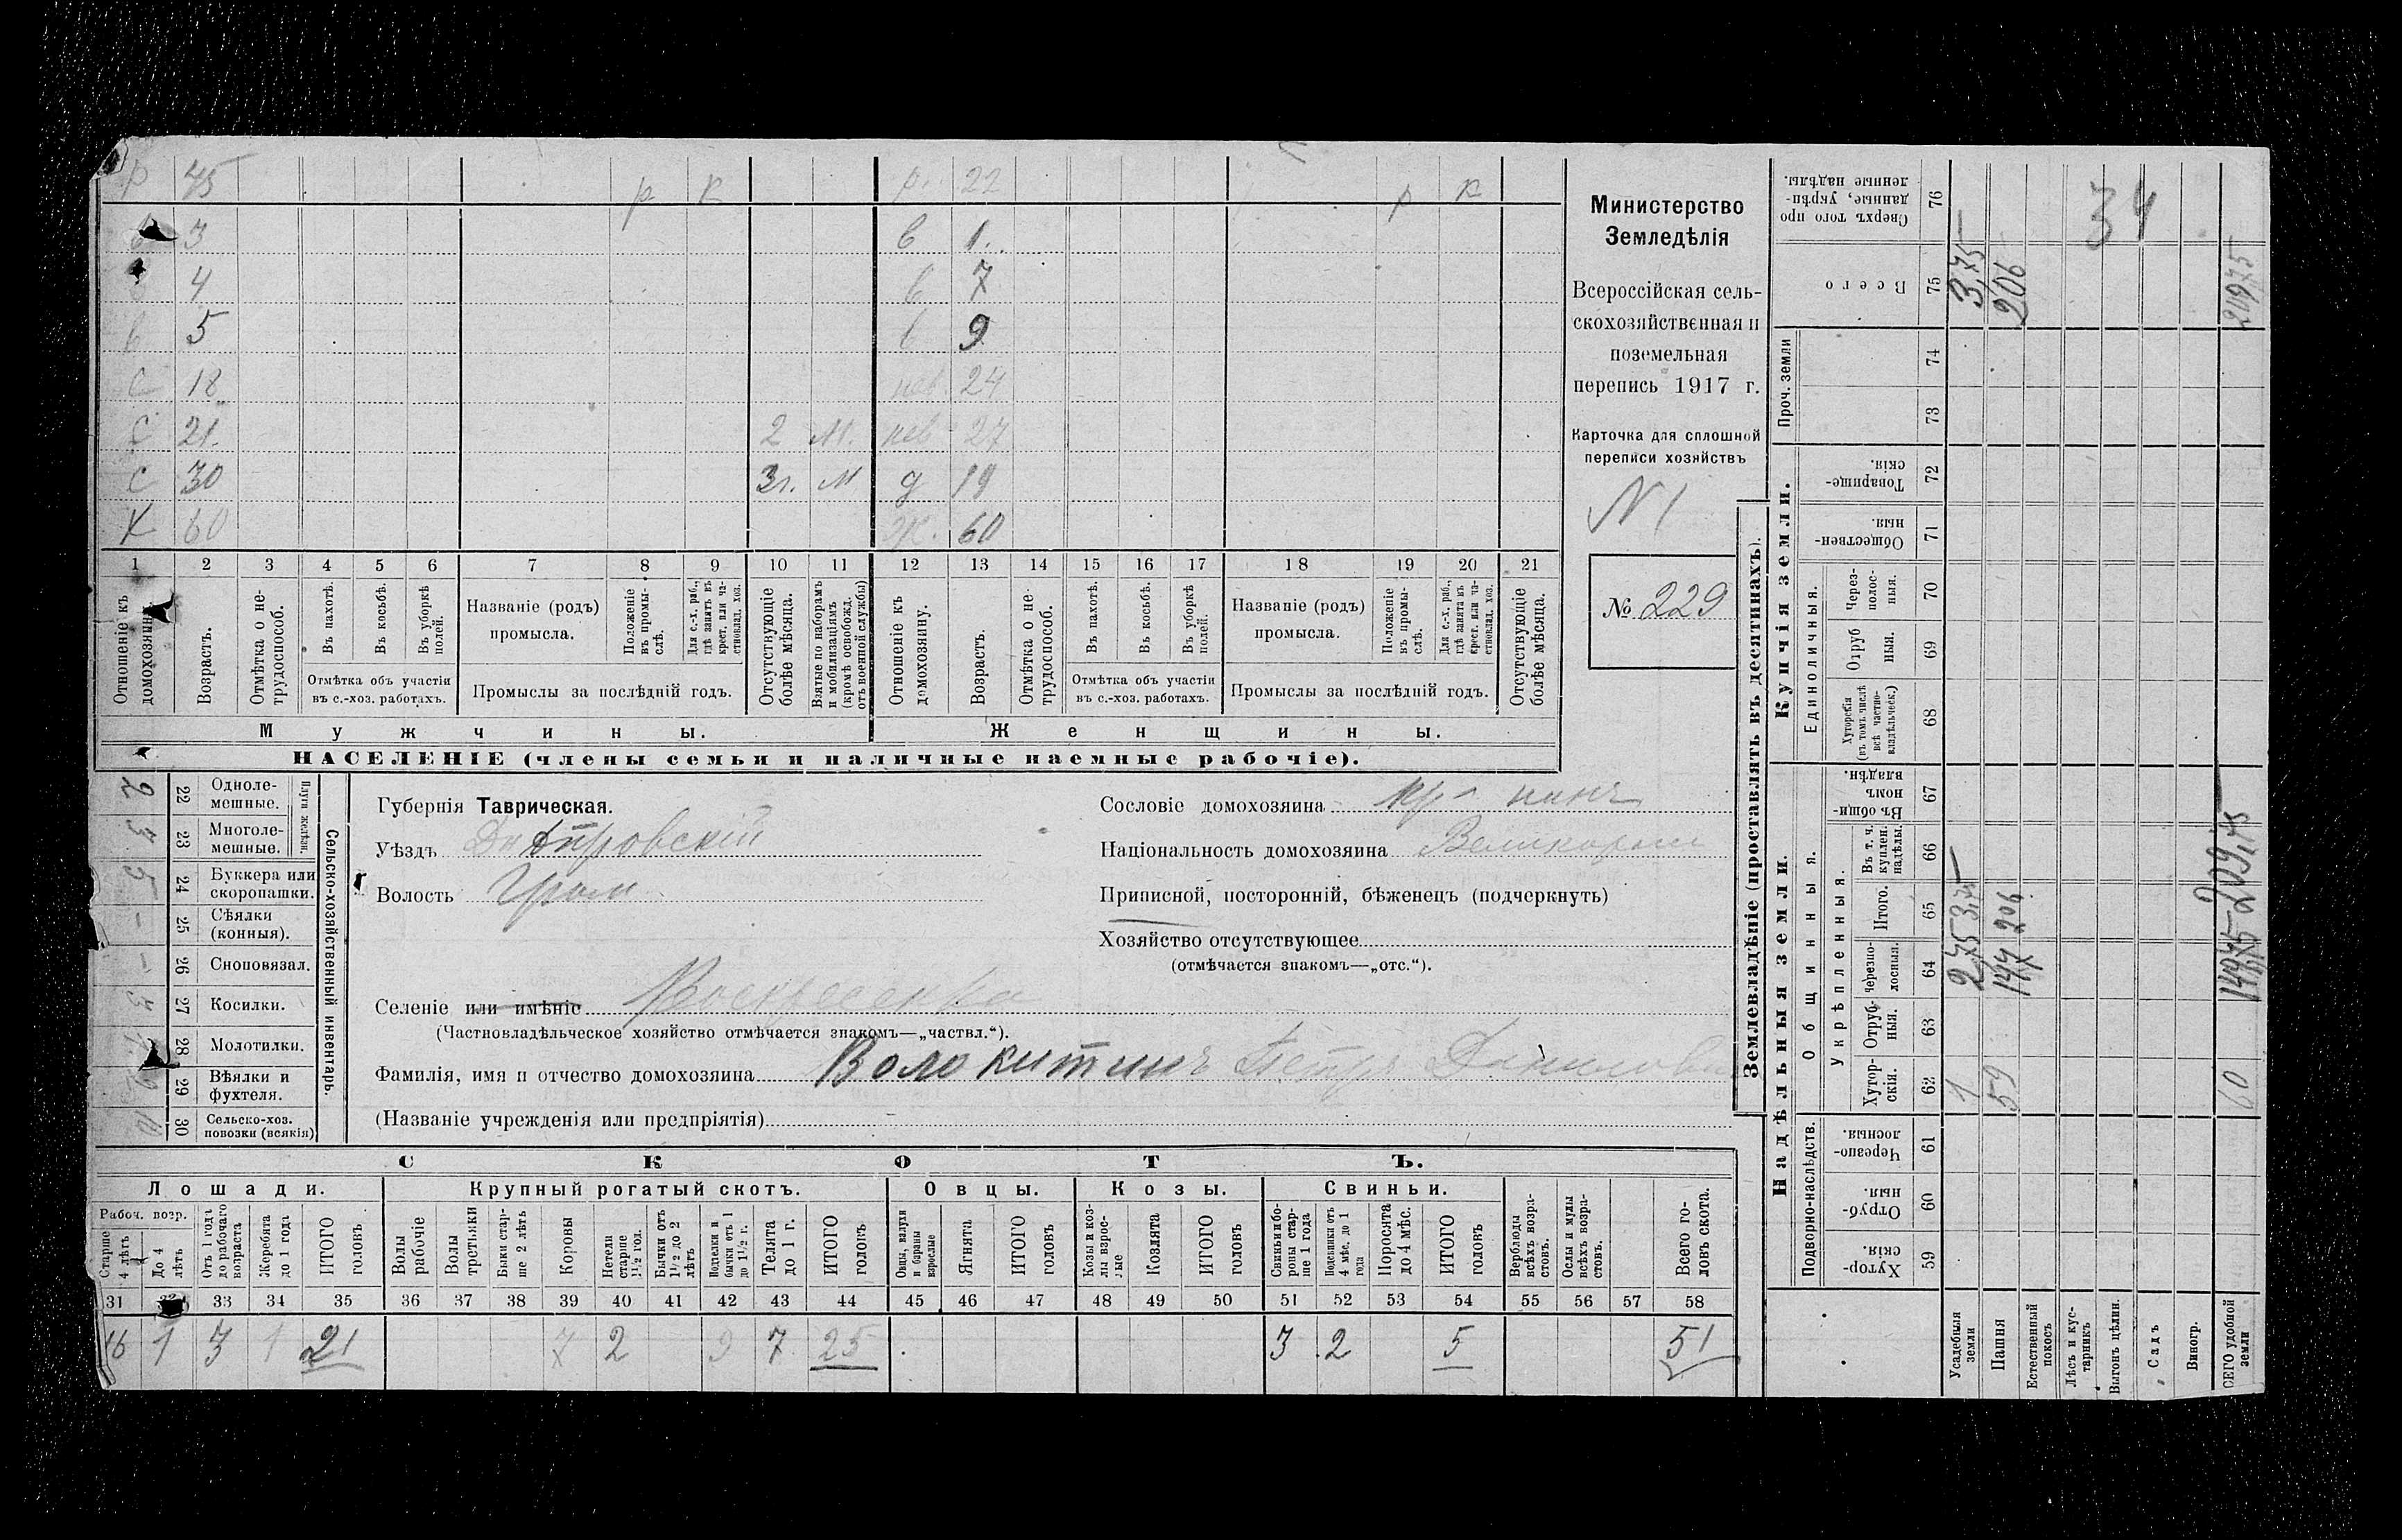 р 45 р к р. 22 р к
в 3 в 1.
4 в 7
в 5 в 9
с 18 нев 24
с 21. 2 М. нев 27
с 30 3г. М д 19
Х 60 Ж. 60
1 2 3 4 5 6 7 8 9 10 11 12 13 14 15 16 17 18 19 20 21
Отношеніе къ домохозяину.
Возрастъ.
Отмѣтка о нетрудоспособ.
Въ пахотѣ.
Въ косьбѣ.
Въ уборкѣ полей.
Отмѣтка объ участіи въ с.-хоз. работахъ.
Названіе (родъ) промысла.
Положеніе въ промыслѣ.
Для с.-х. раб., гдѣ занятъ въ крест. или частновлад. хоз.
Промыслы за послѣдній годъ.
Отсутствующіе болѣе мѣсяца.
Взятые по наборамъ и мобилизаціямъ (кромѣ освобожд. отъ военной службы)
Отношеніе къ домохозяину.
Возрастъ.
Отмѣтка о нетрудоспособ.
Въ пахотѣ.
Въ косьбѣ.
Въ уборкѣ полей.
Отмѣтка объ участіи въ с.-хоз. работахъ.
Названіе (родъ) промысла.
Положеніе въ промыслѣ.
Для с.-х. раб., гдѣ занята въ крест. или частновлад. хоз.
Промыслы за послѣдній годъ.
Отсутствующіе болѣе мѣсяца.
Мужчины. Женщины.
НАСЕЛЕНІЕ (члены семьи и наличные наемные рабочіе).
Министерство
Земледѣлія
Всероссійская сель-
скохозяйственная и
поземельная
перепись 1917 г.
Карточка для сплошной
переписи хозяйствъ
N 1
№ 229
Сельско-хозяйственный инвентарь.
Плуги желѣзн.
2 22 Одноле-мешные.
3 23 Многоле-мешные.
5 24 Буккера или скоропашки.
- 25 Сѣялки (конныя).
- 26 Сноповязал.
3 27 Косилки.
28 Молотилки.
29 Вѣялки и фухтеля.
10 30 Сельско-хоз. повозки (всякія)
Губернія Таврическая.
Уѣздъ Днѣпровскій
Волость Гром
Селеніе или имѣніе Воскресенка
(Частновладѣльческое хозяйство отмѣчается знакомъ—„частвл.“).
Фамилія, имя и отчество домохозяина Волокитинъ Петръ Данилови
(Названіе учрежденія или предпріятія)
Сословіе домохозяина кр-нинъ
Національность домохозяина Великоросс
Приписной, посторонній, бѣженецъ (подчеркнуть)
Хозяйство отсутствующее
(отмѣчается знакомъ—„отс.“).
СКОТЪ.
Лошади. Крупный рогатый скотъ. Овцы. Козы. Свиньи.
Рабоч. возр.
Старше 4 лѣтъ
До 4 лѣтъ
Отъ 1 года до рабочаго возраста
Жеребята до 1 года
ИТОГО головъ
Волы рабочіе
Волы третьяки
Быки старше 2 лѣтъ
Коровы
Нетели старше 1½ год.
Бычки отъ 1½ до 2 лѣтъ
Подтелки и бычки отъ 1 до 1½ г.
Телята до 1 г.
ИТОГО головъ
Овцы, валухи и бараны взрослые
Ягнята
ИТОГО головъ
Козы и козлы взрослые
Козлята
ИТОГО головъ
Свиньи и боровы старше 1 года
Подсвинки отъ 4 мѣс. до 1 года
Поросята до 4 мѣс.
ИТОГО головъ
Верблюды всѣхъ возрастовъ.
Ослы и мулы всѣхъ возрастовъ.
Всего головъ скота.
31 33 34 35 36 37 38 39 40 41 42 43 44 45 46 47 48 49 50 51 52 53 54 55 56 57 58
16 1 3 1 21 7 2 9 7 25 3 2 5 51
Землевладѣніе (проставлять въ десятинахъ).
Надѣльныя земли. Купчія земли. Проч. земли
Подворно-наслѣдств. Общинныя. Укрѣпленныя. Единоличныя.
59 Хуторскія.
60 Отрубныя.
61 Черезполосныя.
62 Хуторскія.
63 Отрубныя.
64 Черезполосныя.
65 Итого.
66 Въ т. ч. куплен. надѣлы.
67 Въ общинномъ владѣн.
68 Хуторскія (въ томъ числѣ всѣ частновладѣльческ.)
69 Отрубныя.
70 Черезполосныя.
71 Общественныя.
72 Товарищескія.
73
74
75 Всего
76 Сверхъ того проданные, укрѣпленные надѣлы.
Усадебныя земли 1 2,75 3,75 3,75
Пашня 59 147 206 206
Естественный покосъ
Лѣсъ и кустарникъ
Выгонъ цѣлин.
Садъ
Виногр.
СЕГО удобной земли 60 149,75 209,75 209,75
34